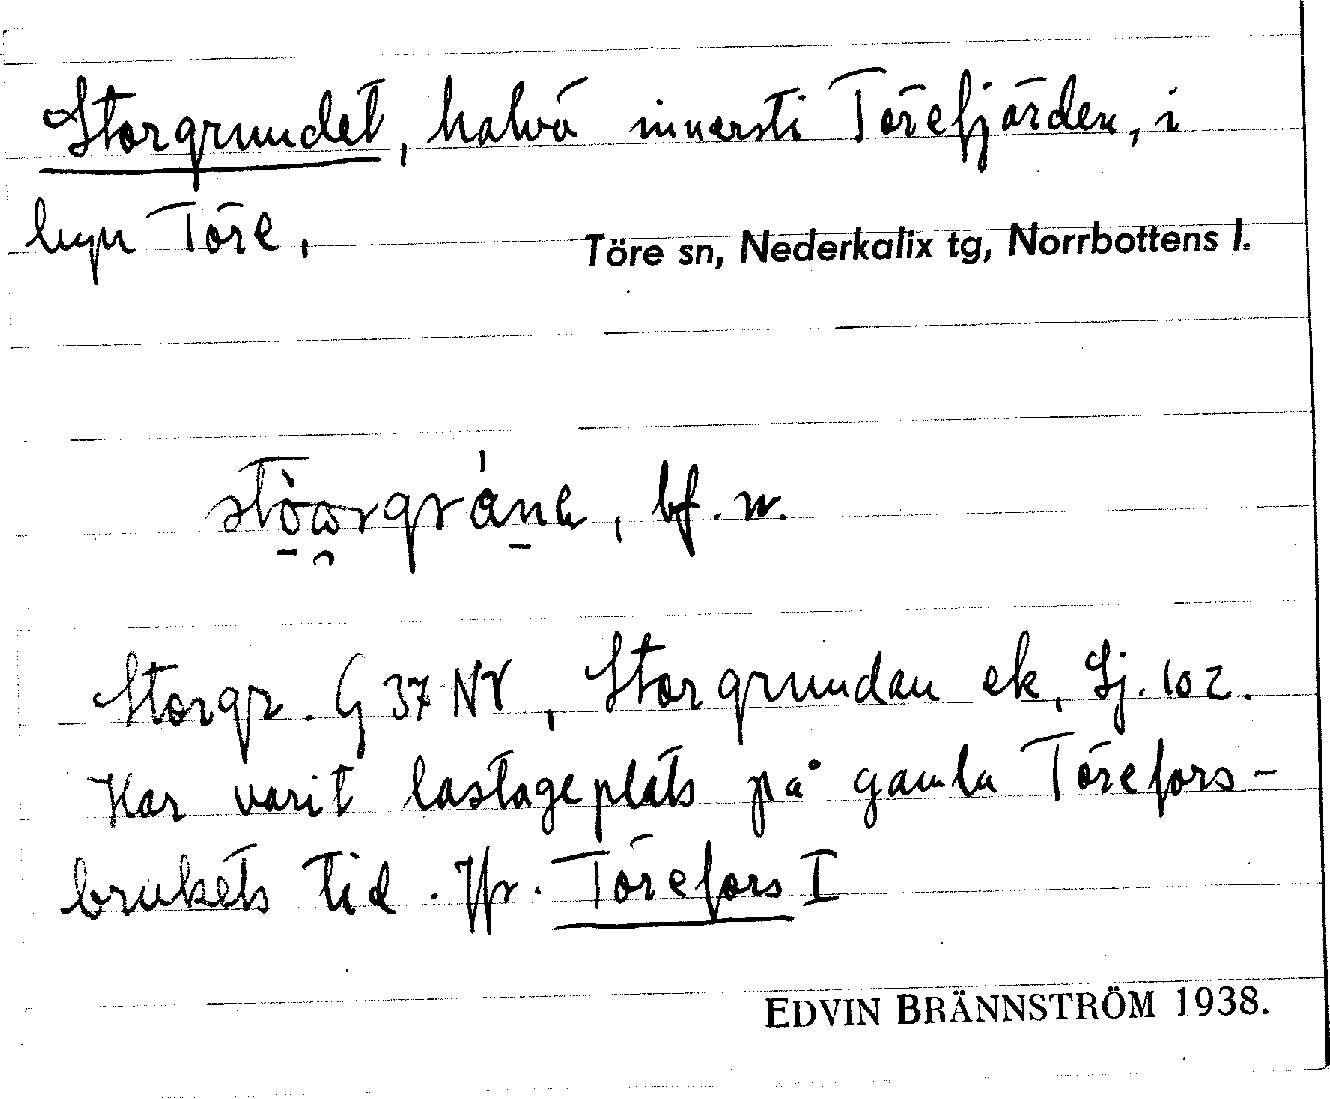 Storgrundet, halvö innerst i Törefjärden, i
byn Töre.
Töre sn, Nederkalix tg, Norrbottens l.
bf. n.
Storgr. G 37 NV, Storgrundan ek. Sj. 102.
Har varit lastageplats på gamla Törefors-
brukets tid. Jfr. Törefors I
EDVIN BRÄNNSTRÖM 1938.